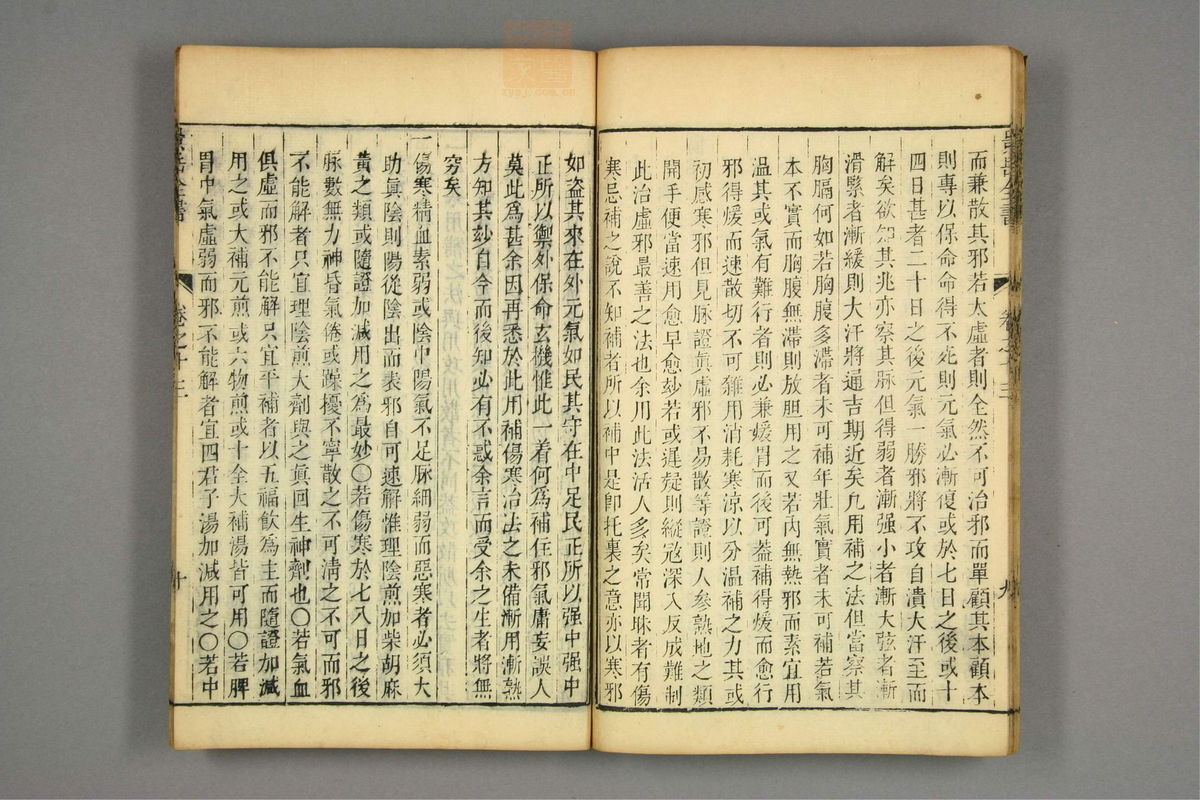 而兼散其邪若太虛者則全然不可治邪而單顧其本顧本
則專以保命命得不死則元氣必漸復或於七日之後或十
四日甚者二十日之後元氣一勝邪將不攻自潰大汗至而
解矣欲知其兆亦察其脉但得弱者漸强小者漸大弦者漸
滑緊者漸緩則大汗將通吉期近矣凡用補之法但當察其
胸膈何如若胸腹多滯者未可補年壯氣實者未可補若氣
本不實而胸腹無滯則放胆用之又若內無熱邪而素宜用
温其或氣有難行者則必兼媛胃而後可葢補得煖而愈行
邪得煖而速散切不可雜用消耗寒涼以分温補之力其或
初感寒邪但見脉證真虛邪不易散等證則人參熟地之類
開手便當速用愈早愈玅若或遲疑則縱宼深入反成難制
此治虛邪最善之法也余用此法活人多矣常聞昧者有傷
寒忌補之說不知補者所以補中是卽托裏之意亦以寒邪
如盗其來在外元氣如民其守在中足民正所以强中强中
正所以禦外保命玄機惟此一着何為補住邪氣庸妄誤人
莫此為甚余因再悉於此用補傷寒治法之未備漸用漸熟
方知其玅自今而後知必有不惑余言而受余之生者將無
窮矣
一傷寒精血素弱或陰中陽氣不足脉細弱而惡寒者必須大
助眞陰則陽從陰出而表邪自可速解惟理陰煎加柴胡麻
黃之類或隨證加减用之為最妙〇若傷寒於七八日之後
脉數無力神昏氣倦或躁擾不寧散之不可淸之不可而邪
不能解者只宜理陰煎大劑與之眞回生神劑也〇若氣血
俱虛而邪不能解只宜平補者以五福飲為主而隨證加減
用之或大補元煎或六物煎或十全大補湯皆可用〇若脾
胃中氣虛弱而邪不能解者宜四君子湯加減用之〇若中
景岳全書
卷之十三
九
景岳全書
卷之十三
十